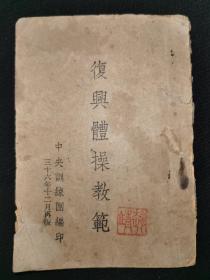 復興體操教範
中央訓練團編印
三十六年十二月再版